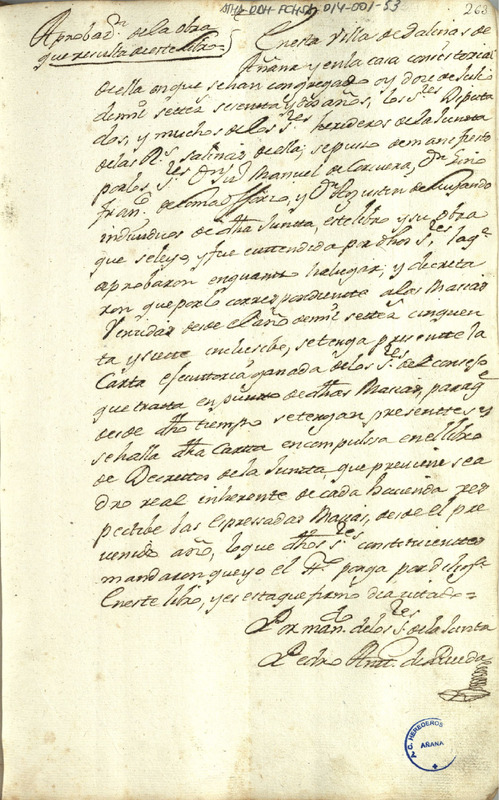 ATHA-DAH-FCHSA-014-001-53
268
Aprobaon. de la obra
que resulta de este libro
En esta Villa de Salinas de
Añana y en la casa consistorial
de ella en que se han congregado oy doze de Julio
de mil settezs. sesentta y dos años, los Sres. Diputa
dos, y muchos de los Sres. herederos de la Juntta
de las Rs. salinas de ella; se puso de manifiesto
por los Sres. Dn. Manuel de Corcuera, Dn.
Fran.co de y Dn.
individuos de dha Juntta, este libro y su obra
que se leyo, y fue enttendida por dhos Sres, la qe.
aprobaron en quantto ha lugar, y decreta
ron que por lo correspondientte a las Masias
Venzidas desde el año de mil settezs. cinquen
ta y siette inclusibe, se tenga presentte la
Carta executtoria ganada de los Sres. del consejo
que tratta en puntto de dhas Masias, para qe
desde dho tiempo se tengan presenttes y
se halla dha Cartta en compulsa en el libro
de Decrettos de la Juntta que previene sea
dro real inherente de cada hacienda res
pectibe las expressadas Masias, desde el pre
venido año, lo que dhos Sres. constituientes
mandaron que yo el ponga por dilixa.
En este libro, y es esta que firmo dia cittado =
Por mando. de los Sres. de la Juntta
Pedro Antto. de Rueda
C. HEREDEROS
AÑANA